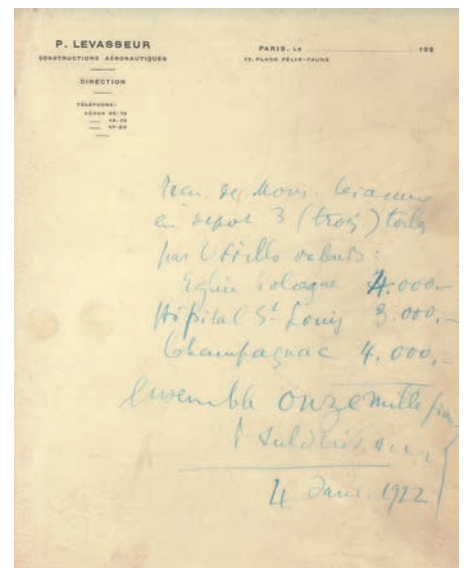 P. LEVASSEUR
CONSTRUCTIONS AÉRONAUTIQUES
DIRECTION
TÉLÉPHONE:
PARIS, LE 192
17, PLACE FÉLIX-FAURE
Reçu de Mons. Levasseur
en depot 3 (trois) toiles
par Utrillo valeurs:
Eglise 4.000.-
Hôpital St Louis 3.000,-
Champagnac 4.000,-
Ensemble onze mille
4 Janv. 1922